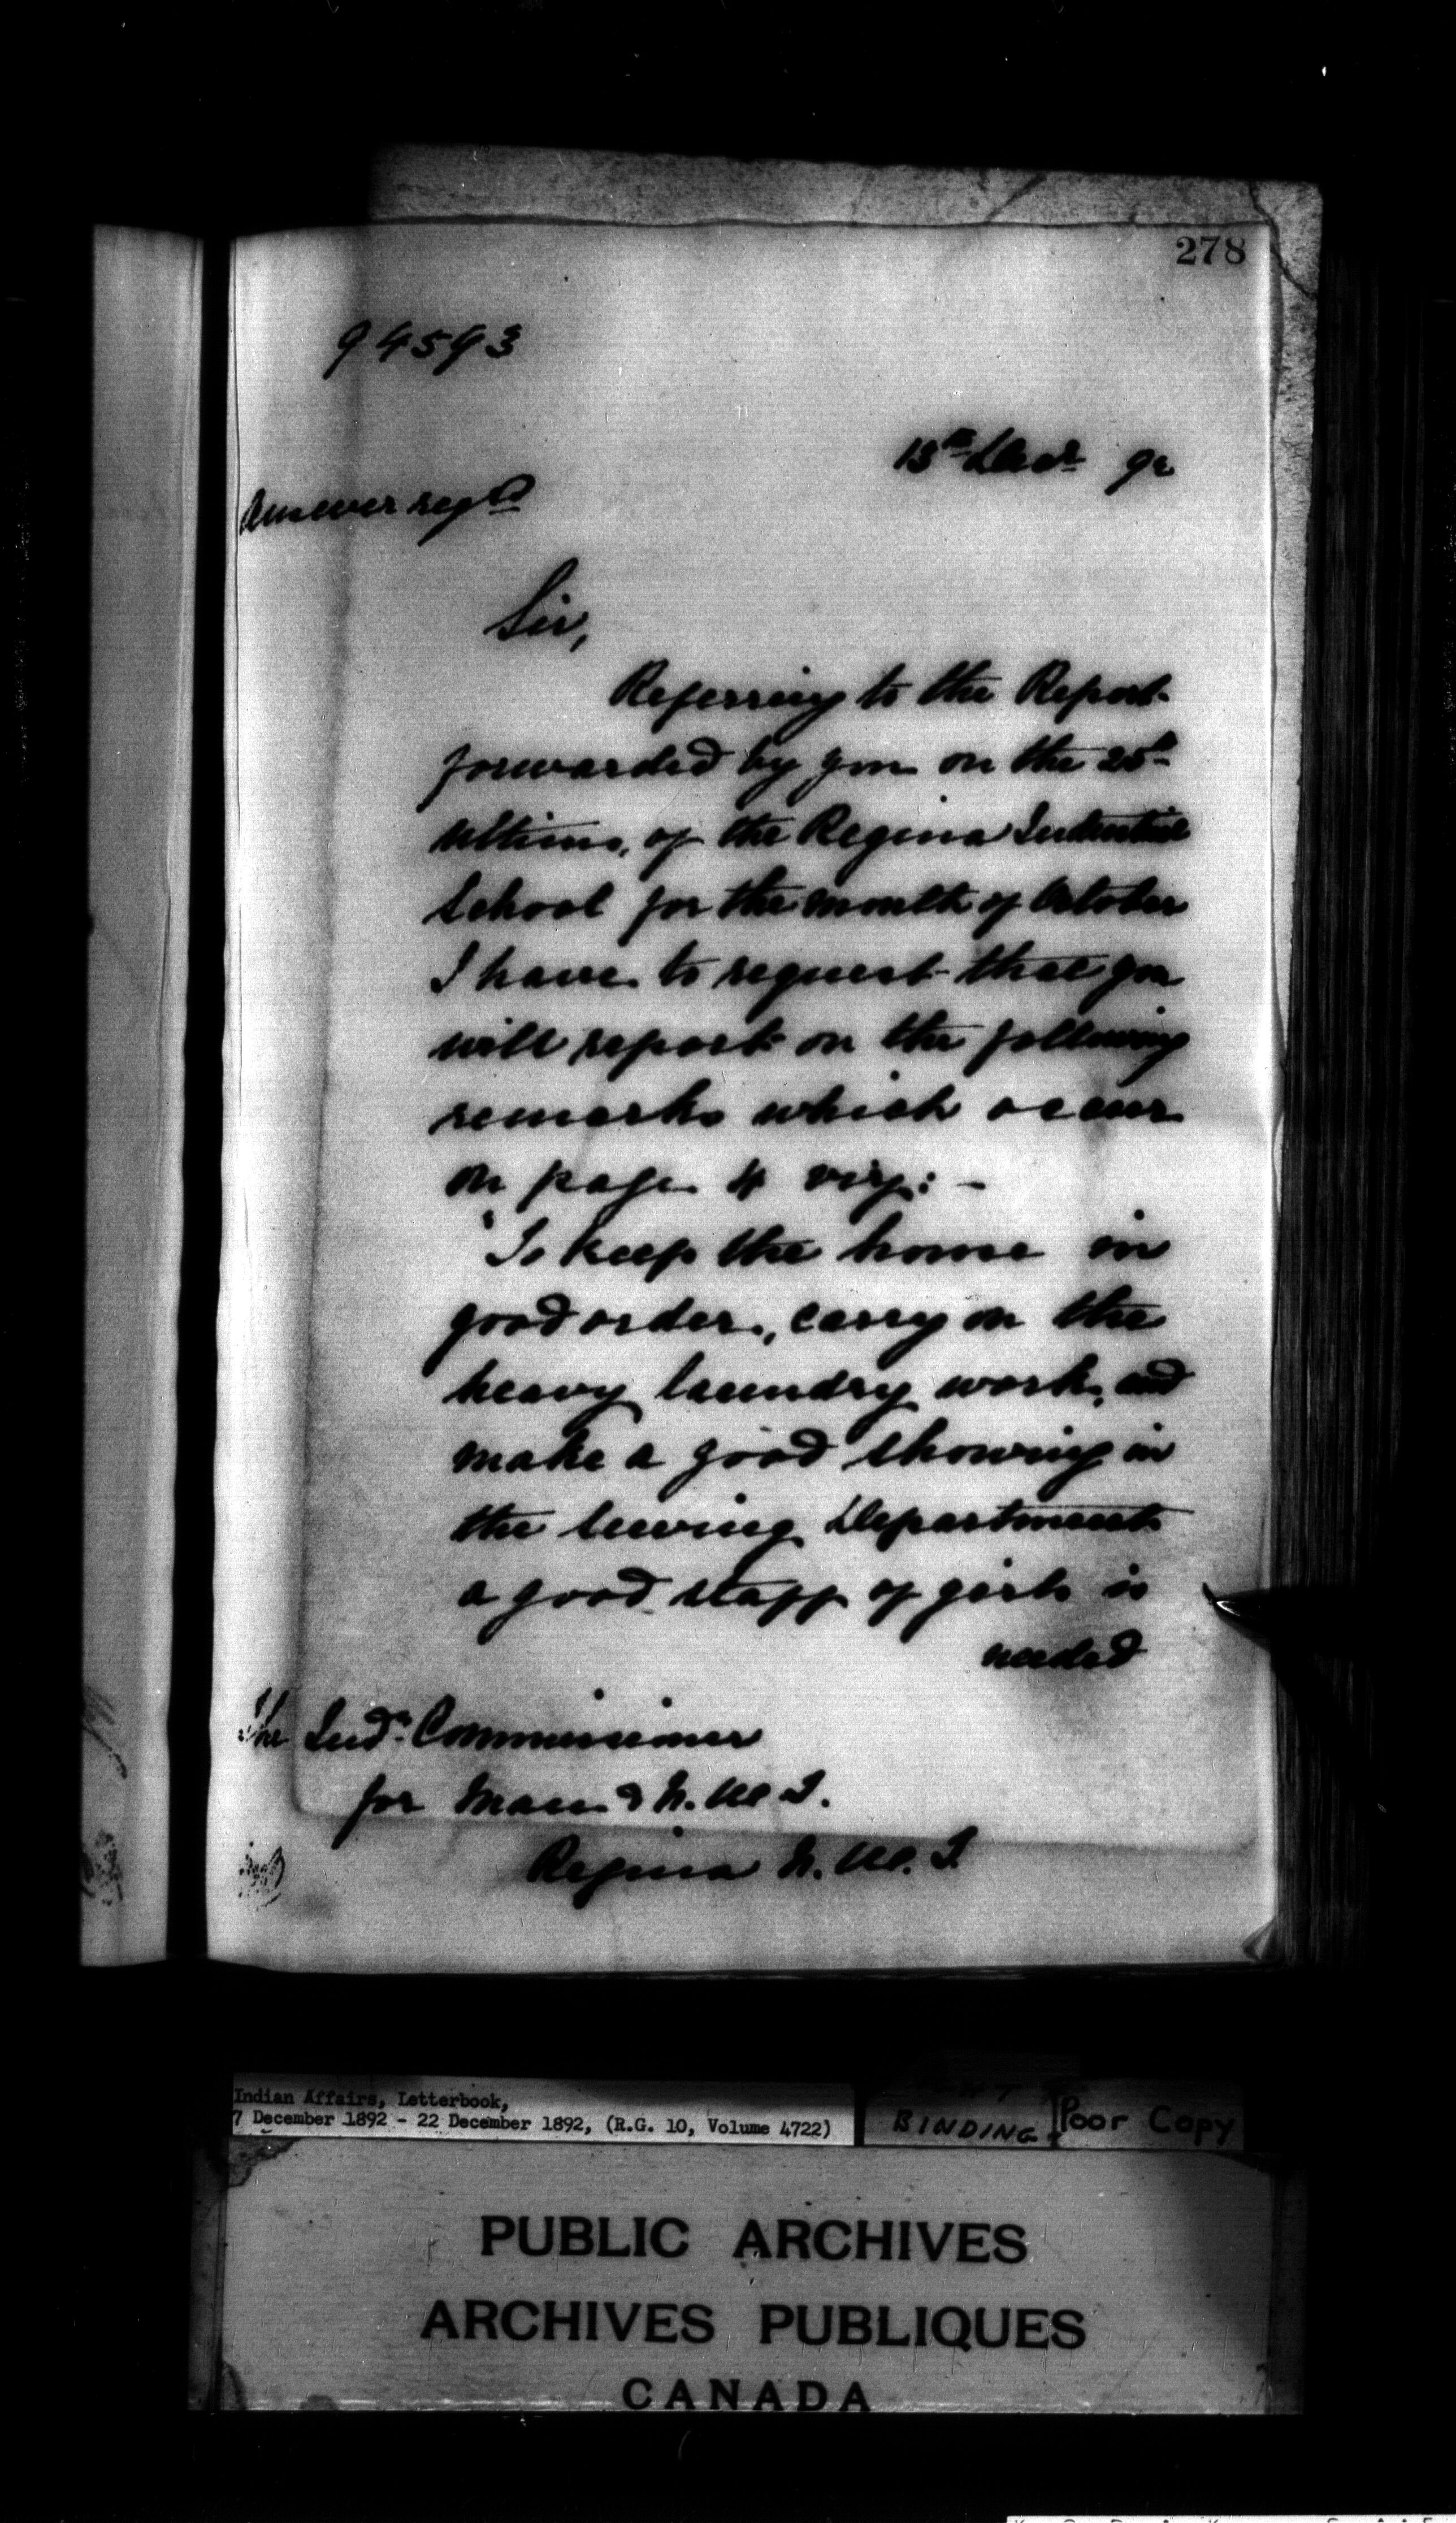 278
94593
13th Decr 92
Answer reqd
Sir,
Referring to the Report
forwarded by you on the 25th
ultimo, of the Regina Industrial
School for the month of October
I have to request that you
will report on the following
remarks which occur
on page 4 viz: -
"To keep the house in
good order, carry on the
heavy laundry work, and
make a good showing in
the sewing Department
a good staff of girls is
needed
The Indn Commissioner
for Man & N.W.T.
Regina N.W.T.
Indian Affairs, Letterbook,
7 December 1892 - 22 December 1892, (R.G. 10, Volume 4722)
BINDING
Poor Copy
PUBLIC ARCHIVES
ARCHIVES PUBLIQUES
CANADA